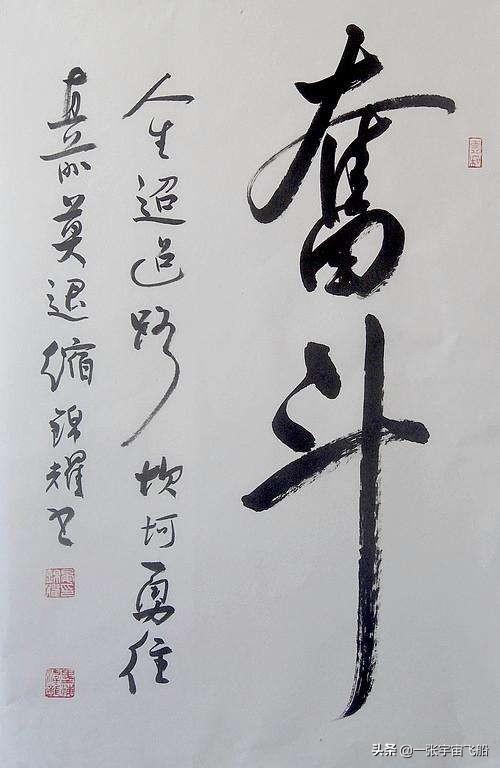 奮斗
人生迢迢路坎坷勇往
直前莫退缩錦耀书
头条 @一张宇宙飞船